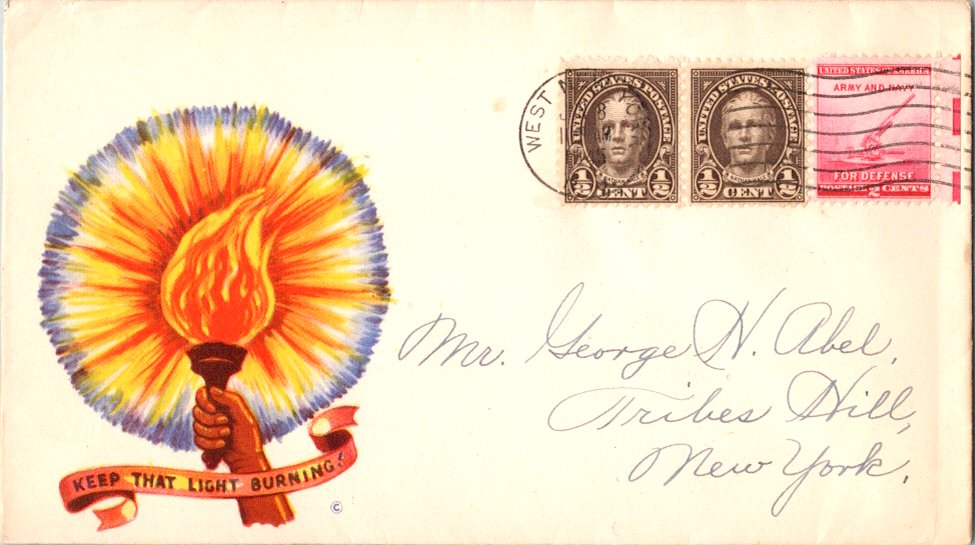 WEST
UNITED STATES POSTAGE
1/2 CENT 1/2
UNITED STATES POSTAGE
1/2 CENT 1/2
UNITED STATES OF AMERICA
ARMY AND NAVY
FOR DEFENSE
POSTAGE 2 CENTS
Mr. George H. Abel,
Tribes Hill,
New York.
KEEP THAT LIGHT BURNING!
©